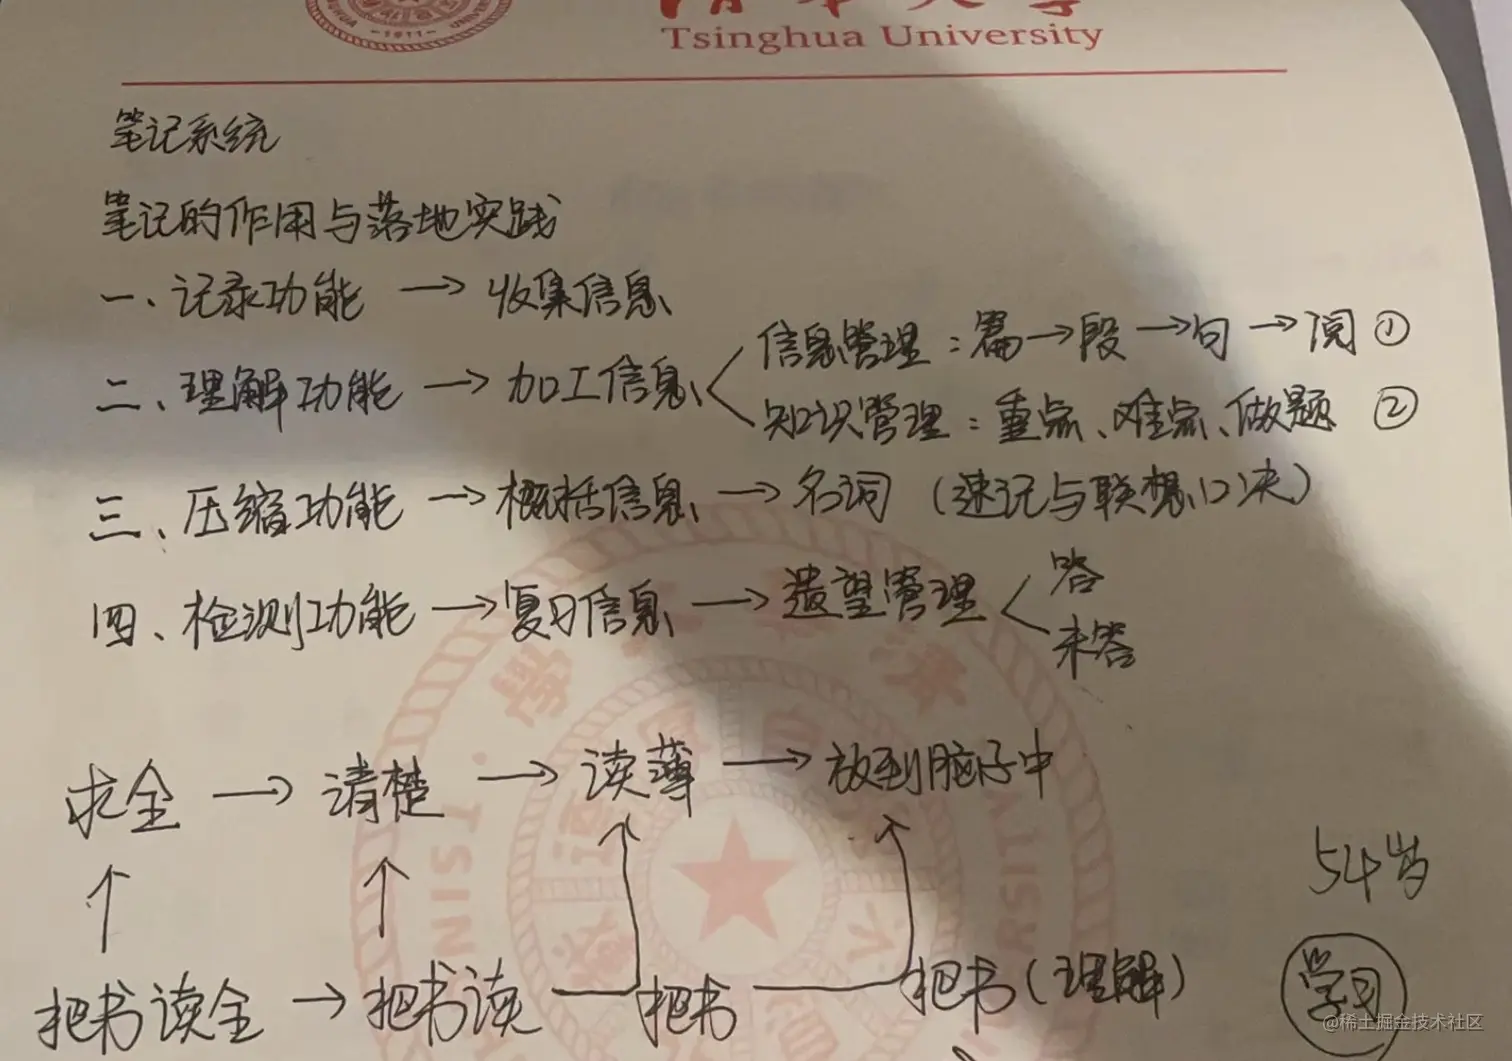 清华大学
Tsinghua University
-1911-
笔记系统
笔记的作用与落地实践
一、记录功能 → 收集信息
信息管理：篇→段→句→阅 ①
二、理解功能 → 加工信息
知识管理：重点、难点、做题 ②
三、压缩功能 → 概括信息 → 名词（速记与联想口诀）
四、检测功能 → 复习信息 → 遗望管理
答
未答
求全 → 清楚 → 读薄 → 放到脑子中
↑ ↑ ↑ ↑
54岁
把书读全 → 把书读 把书 把书（理解）
学习
@稀土掘金技术社区